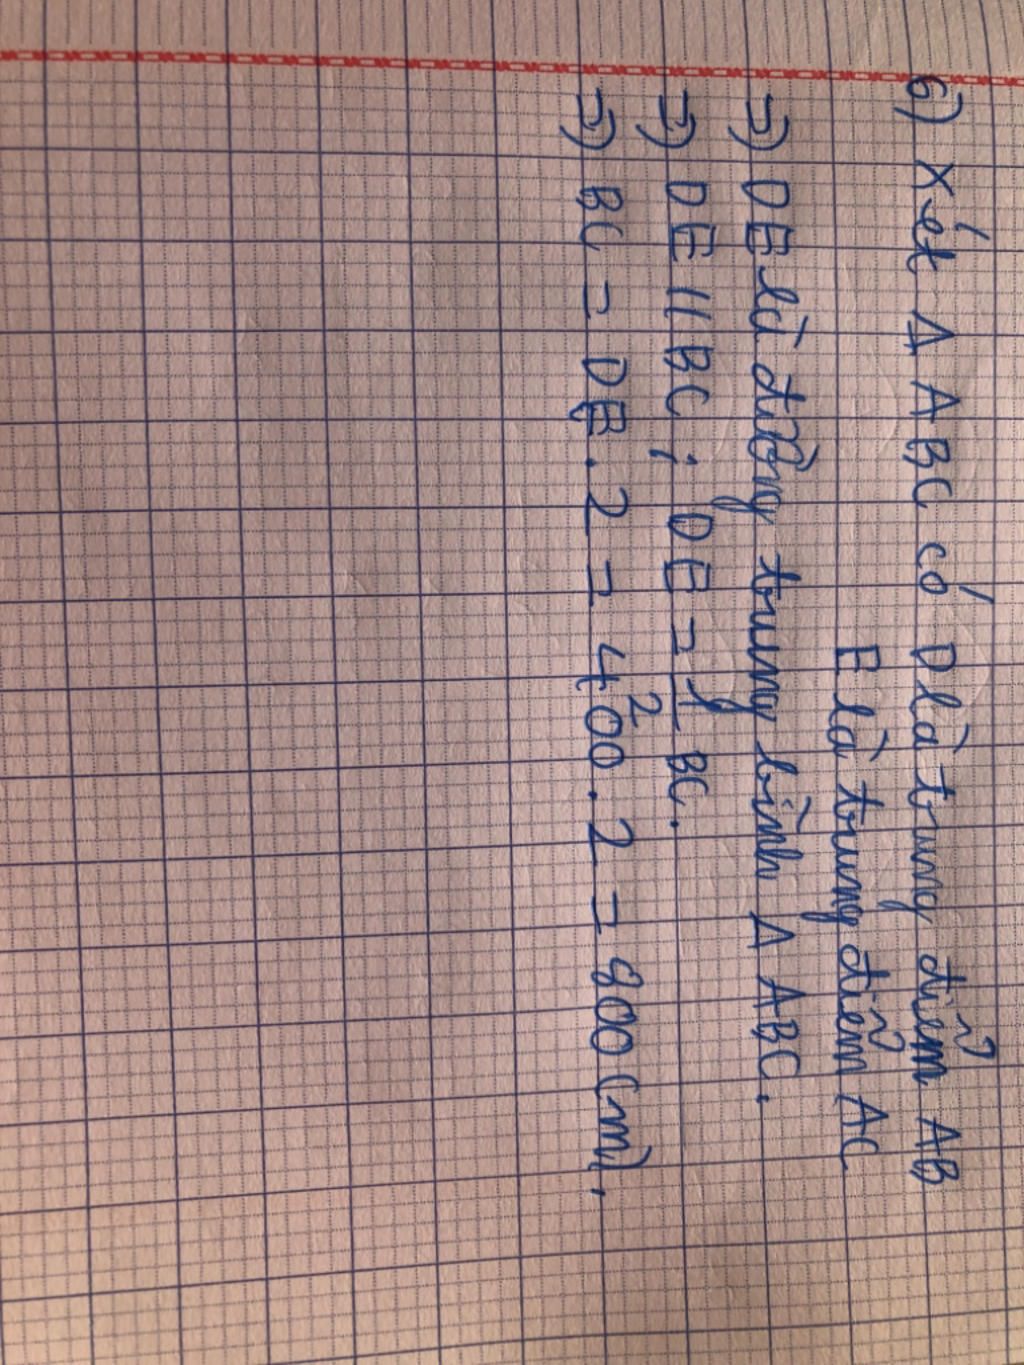 6) Xét Δ ABC có D là trung điểm AB
E là trung điểm AC
=) DE là đường trung bình Δ ABC.
=) DE // BC ; DE = 1/2 BC.
=) BC = DE . 2 = 400 . 2 = 800 (m).